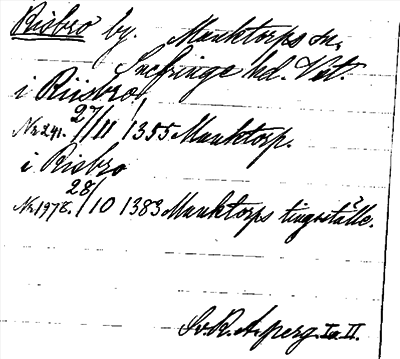 Risbro by. Manktorps sn,
Snefringe hd. Vst.
i Riisbro,
Nr. 241. 27/11 1355 Manktorp.
i Risbro
Nr. 1978. 28/10 1383 Manktorps tingsställe.
Sv. R. A. perg. I o. II.